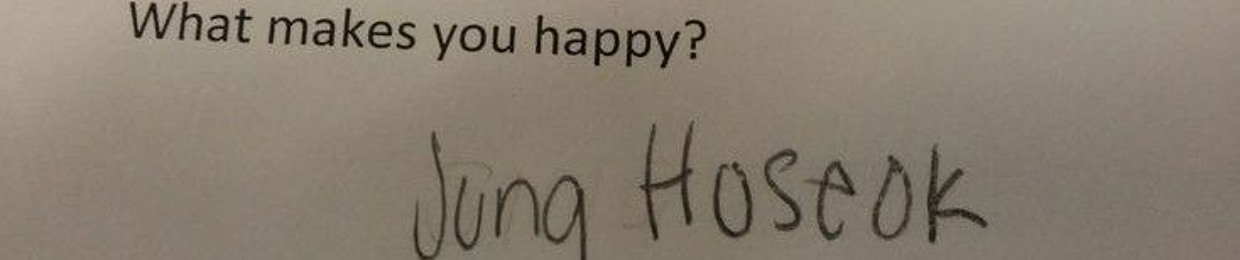 What makes you happy?
Jung Hoseok